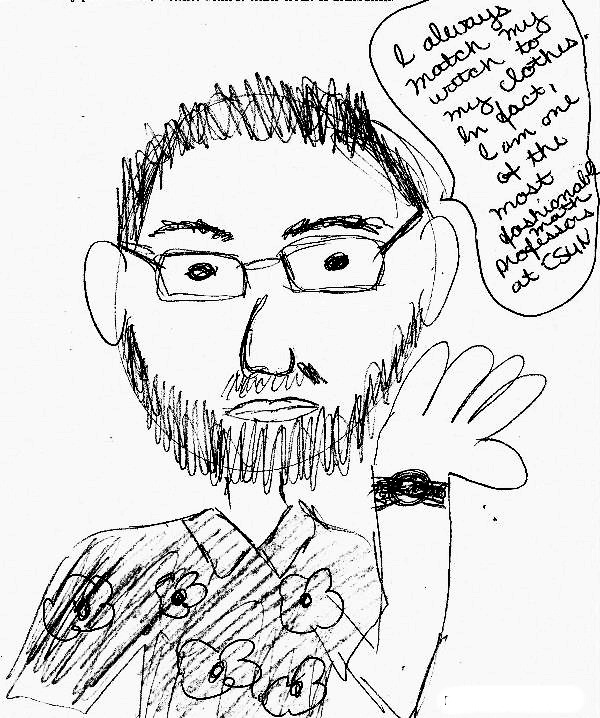 I always
match my
watch to
my clothes.
In fact,
I am one
of the
most
fashionable
math
professors
at CSUN